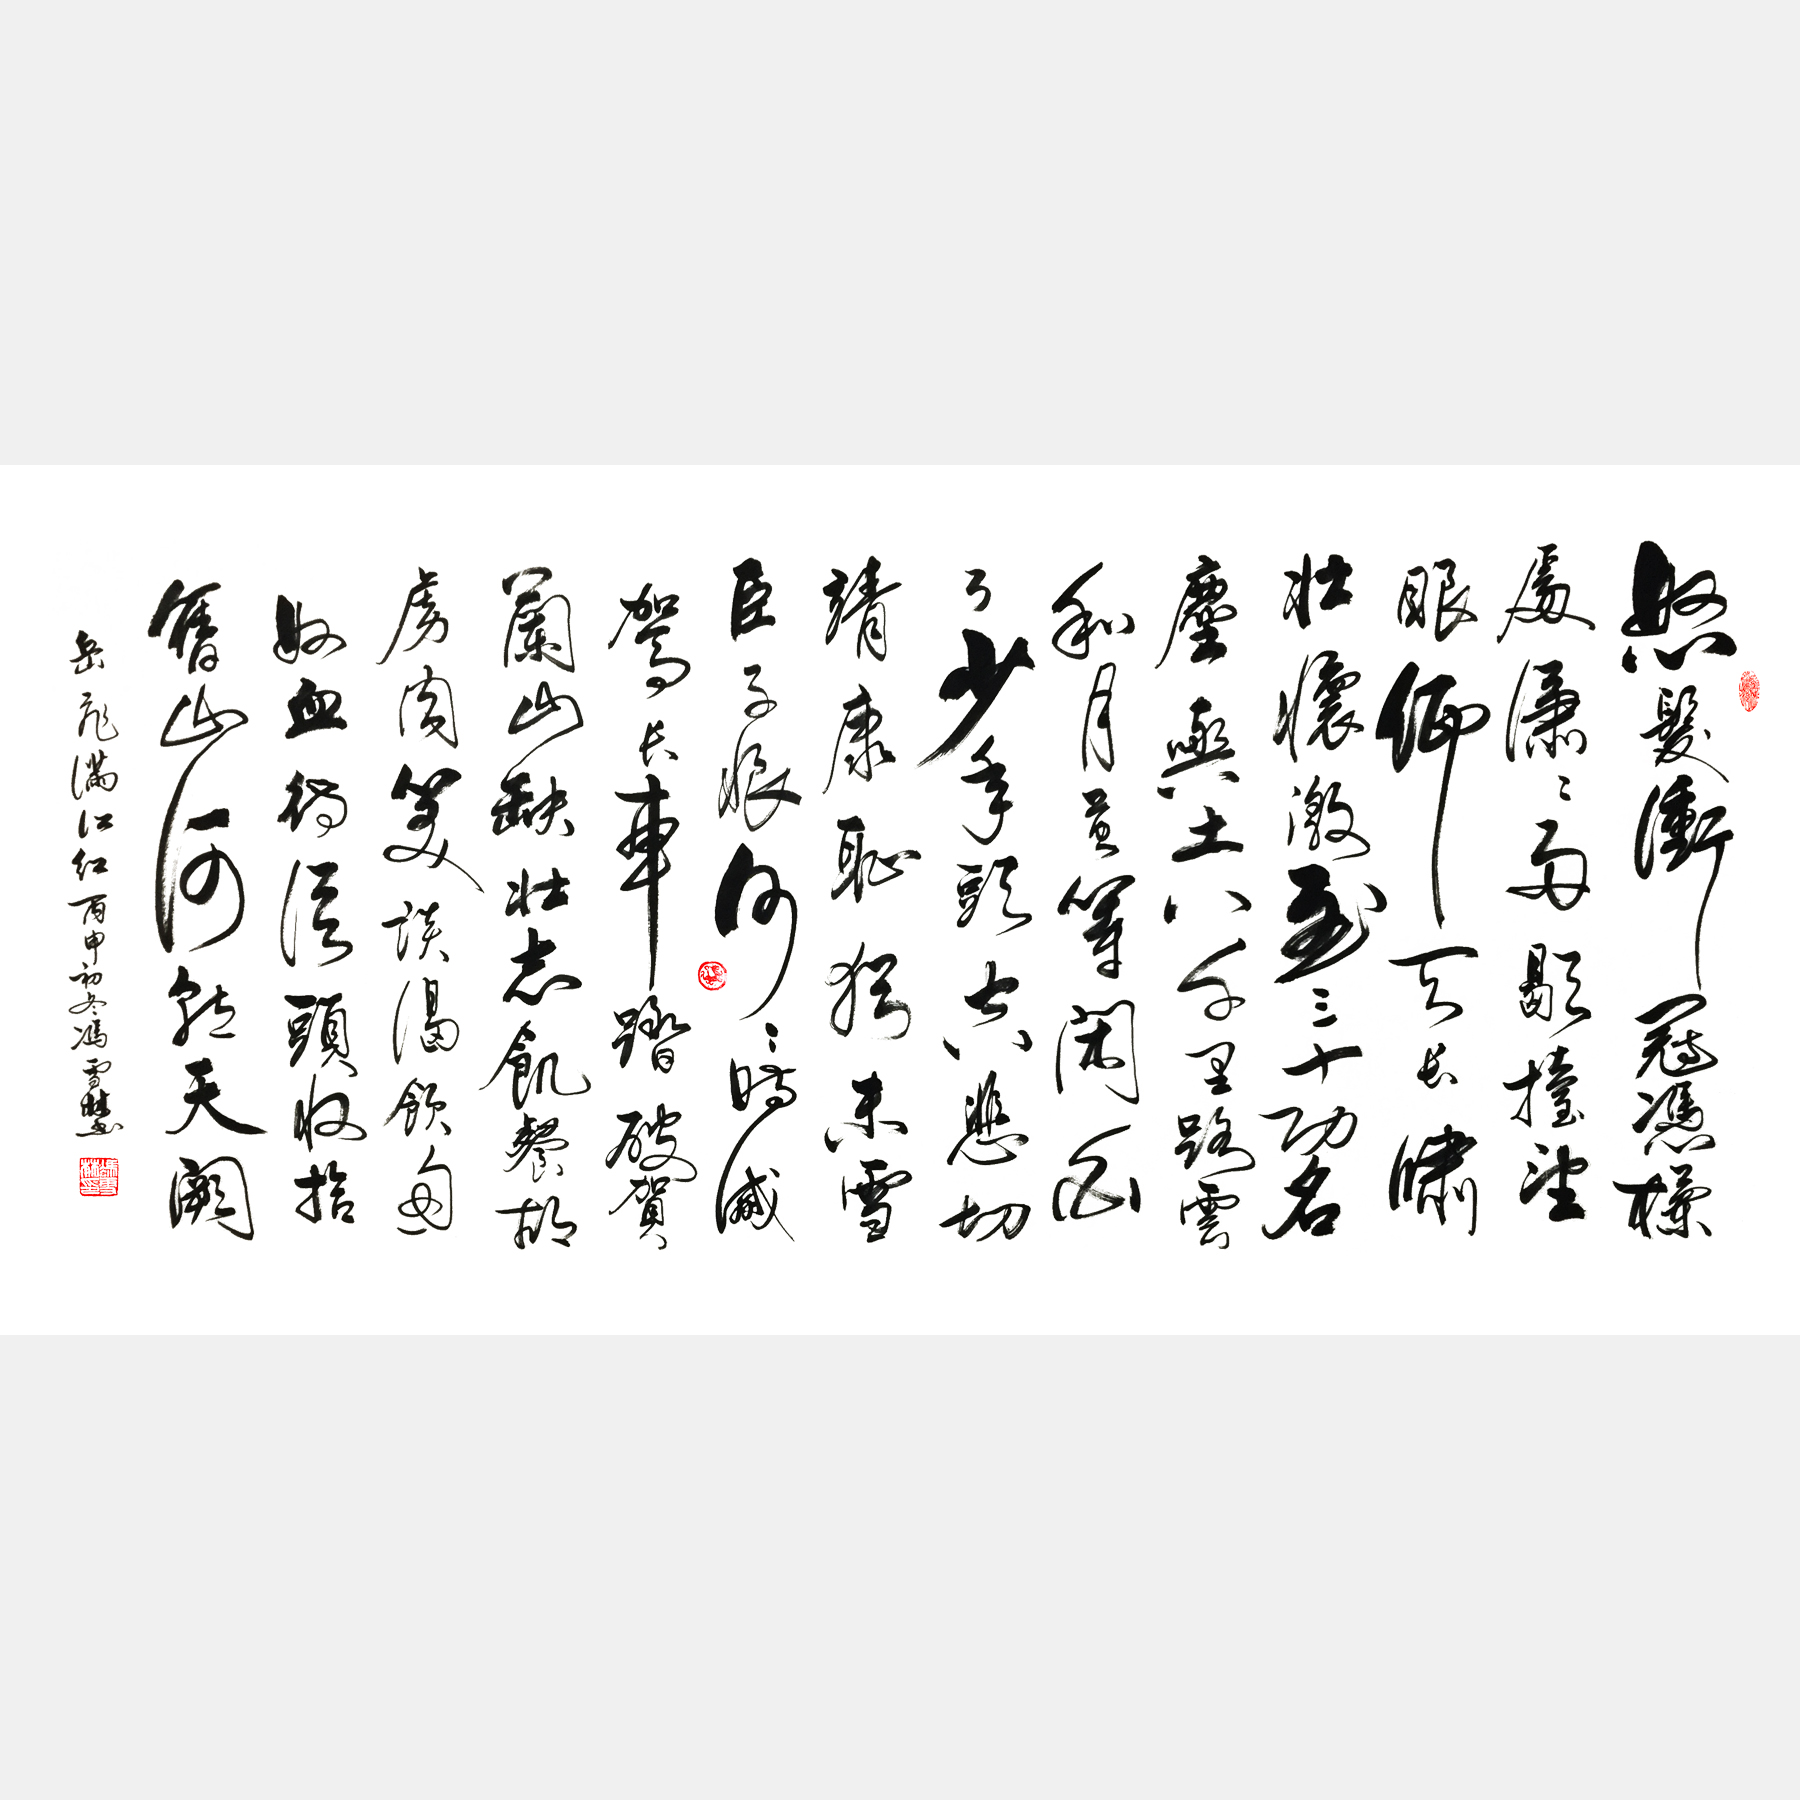 怒髮衝冠憑欄
處瀟〻雨歇擡望
眼仰天長嘯
壯懷激烈三十功名
塵與土八千里路雲
和月莫等閑白
了少年頭空悲切
靖康恥猶未雪
臣子恨何〻時滅
駕長車踏破賀
蘭山缺壯志飢餐胡
虜肉笑談渴飲匈
奴血待從頭收拾
舊山河朝天闕
岳飛滿江紅丙申初冬馮雪林書